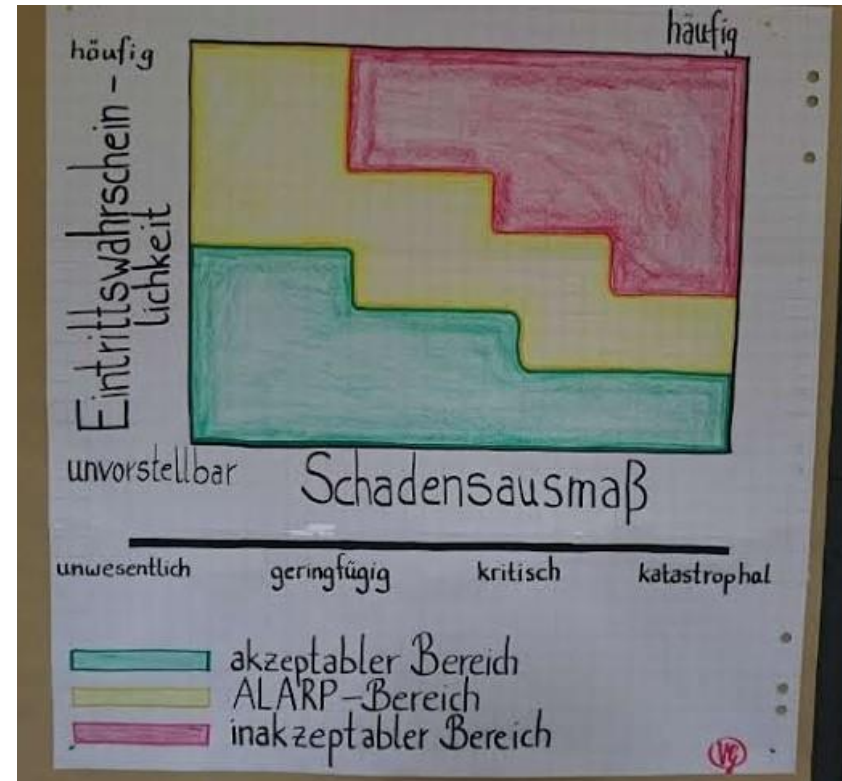 häufig
häufig
Eintrittswahrschein-
lichkeit
unvorstellbar
Schadensausmaß
unwesentlich geringfügig kritisch katastrophal
akzeptabler Bereich
ALARP-Bereich
inakzeptabler Bereich